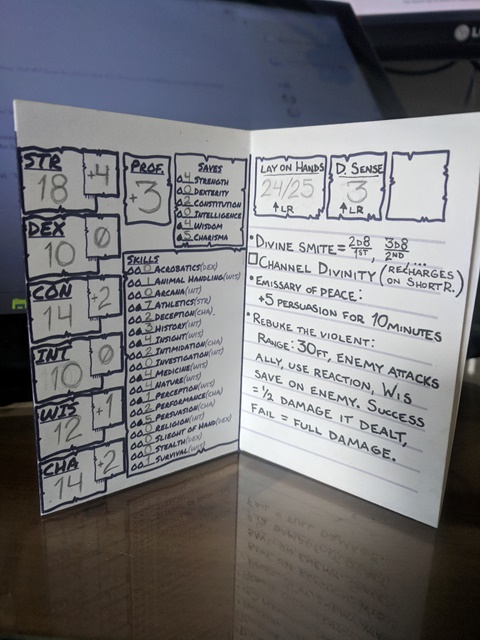 STR
18
+4
DEX
10
0
CON
14
+2
INT
10
0
WIS
12
+1
CHA
14
+2
PROF.
+3
SAVES
4 STRENGTH
0 DEXTERITY
2 CONSTITUTION
0 INTELLIGENCE
4 WISDOM
5 CHARISMA
SKILLS
0 ACROBATICS (DEX)
1 ANIMAL HANDLING (WIS)
0 ARCANA (INT)
7 ATHLETICS (STR)
2 DECEPTION (CHA)
3 HISTORY (INT)
4 INSIGHT (WIS)
2 INTIMIDATION (CHA)
0 INVESTIGATION (INT)
MEDICINE (WIS)
NATURE (WIS)
1 PERCEPTION (WIS)
2 PERFORMANCE (CHA)
5 PERSUASION (CHA)
RELIGION (INT)
0 SLIEGHT OF HAND (DEX)
0 STEALTH (DEX)
1 SURVIVAL (WIS)
LAY ON HANDS
24/25
↑LR
D. SENSE
3
↑LR
• DIVINE SMITE = 2D8 1ST, 3D8 2ND, ...
CHANNEL DIVINITY (RECHARGES ON SHORT R.)
• EMISSARY OF PEACE:
+5 PERSUASION FOR 10 MINUTES
• REBUKE THE VIOLENT:
RANGE: 30FT, ENEMY ATTACKS
ALLY, USE REACTION, WIS
SAVE ON ENEMY. SUCCESS
= 1/2 DAMAGE IT DEALT,
FAIL = FULL DAMAGE.
LG